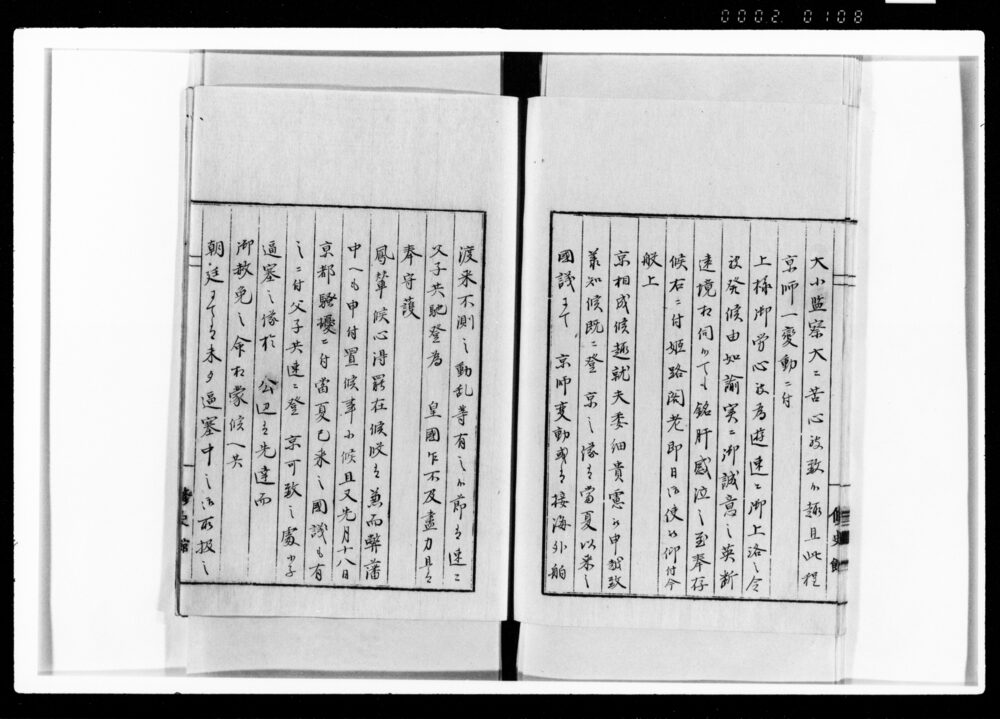 0002 0108
大小監察大ニ苦心被致候趣且此程
京師一変動ニ付
上様御労心被為遊速ニ御上洛之令
被発候由如諭実ニ御誠意之英断
遠境相伺候ても銘肝感泣之至奉存
候右ニ付姫路閣老即日御使被仰付今
般上
京相成候趣就夫委細貴慮被申越致
承知候既ニ登 京之儀者当夏以来之
國議にて 京師変動或者接海外舶
渡来不測之動乱等有之候節者速ニ
父子共馳登為 皇國乍不及盡力且者
奉守護
鳳輦候心得罷在候儀者兼而弊藩
中へも申付置候事ニ候且又先月十八日
京都騒擾ニ付當夏已来之國議も有
之ニ付父子共速ニ登 京可致之處小子
逼塞之儀於 公辺者先達而
御赦免之命相蒙候へ共
朝廷にて者未タ逼塞中之御取扱之
修史館